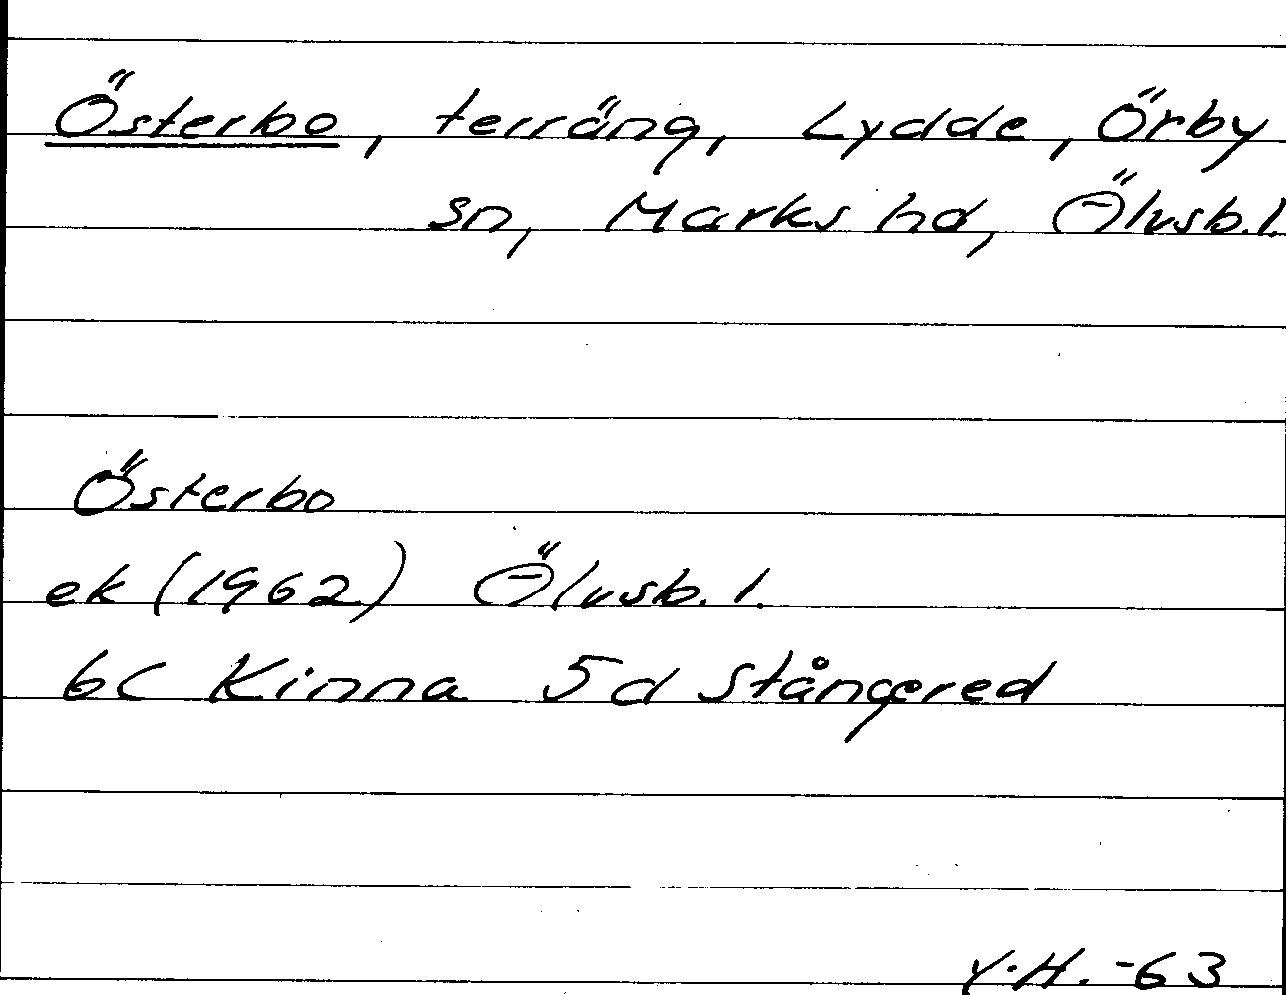 Österbo, terräng, Lydde, Örby
sn, Marks hd, Ölvsb.l.
Österbo
ek (1962) Ölvsb.l.
6C Kinna 5d Stångered
Y.H. -63